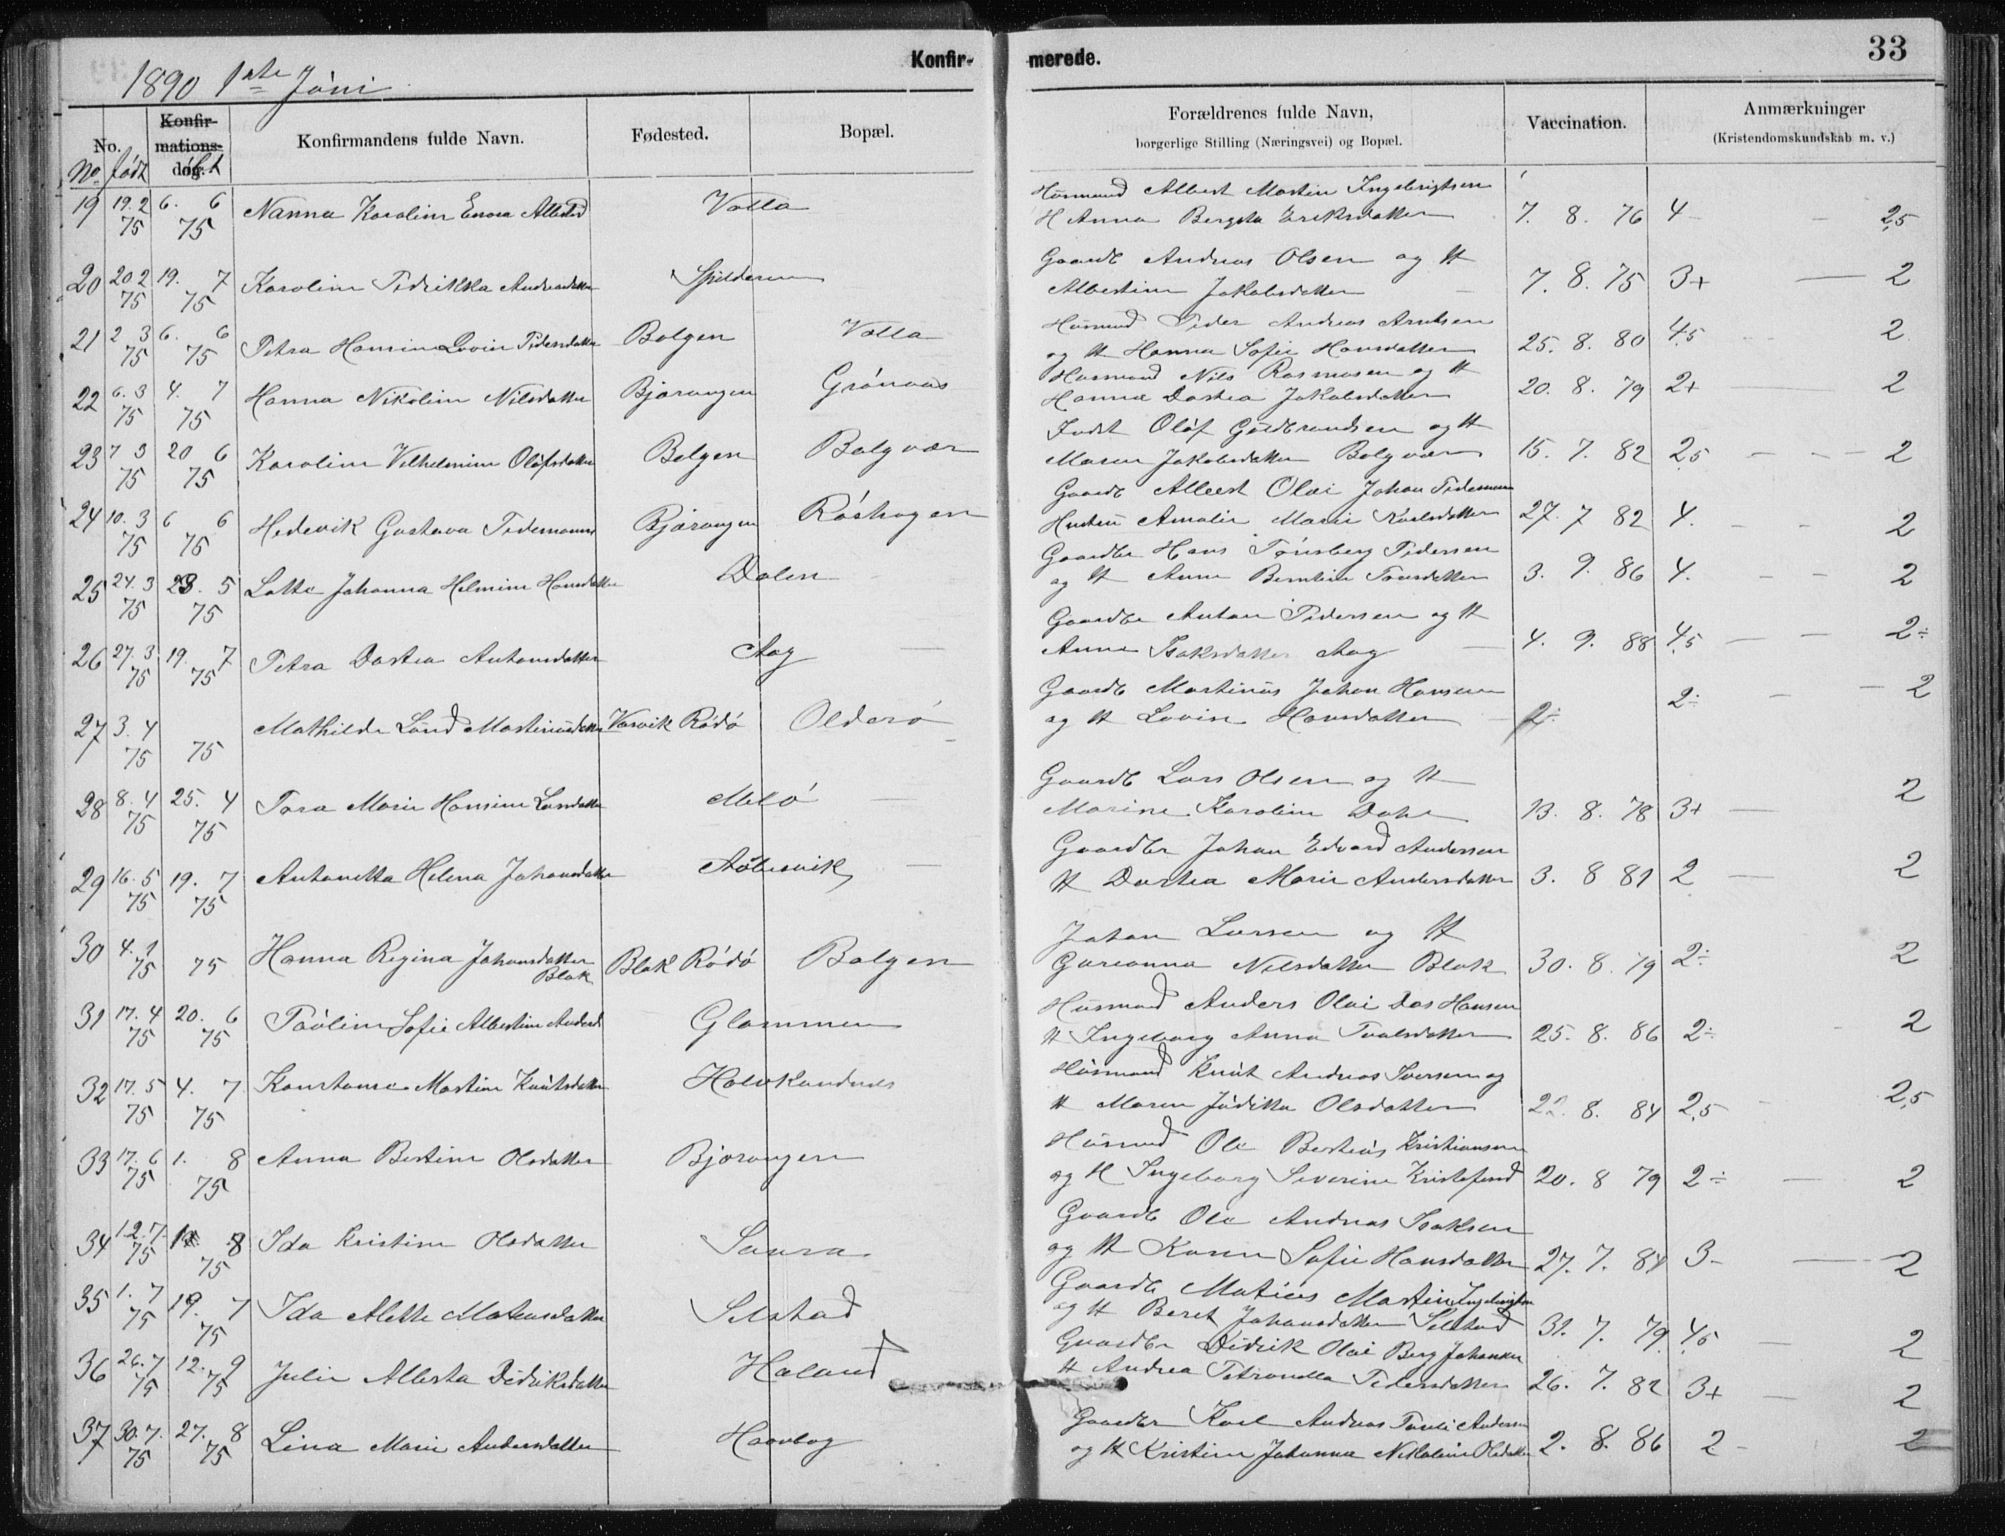 Konfirmerede.
33
1890 1ste Júni
No.
Konfirmationsdag.
Konfirmandens fulde Navn.
Fødested.
Bopæl.
Forældrenes fulde Navn,
borgerlige Stilling (Næringsvei) og Bopæl.
Vaccination.
Anmærkninger
(Kristendomskundskab m. v.)
No. født døbt
19 19.2 75 6. 6 75 Nanna Karoline Enora Albertsd Valla
Húsmand Albert Martin Ingebrigtsen
H Anna Bergita Eriksdatter 7. 8. 76 4 - 2,5
20 20.2 75 19. 7 75 Karoline Pedrikka Andreasdatter Spilderen
Gaardb Andreas Olsen og H
Albertine Jakobsdatter 7. 8. 75 3+ - 2
21 2 3 75 6. 6 75 Petra Hansine Lovise Pedersdatter Bolgen Valla
Húsmand Peder Andreas Arntsen
og H Hanna Sofie Hansdatter 25. 8. 80 4,5 2
22 6. 3 75 4. 7 75 Hanna Nikoline Nilsdatter Bjærangen Grönaas
Husmand Nils Rasmusen og H
Hanna Dortea Jakobsdatter 20. 8. 79 2+ 2
23 7 3 75 20 6 75 Karoline Vilhelmine Olúfsdatter Bolgen Bolgvær
Indst Olúf Gúldbrandsen og H
Maren Jakobsdatter Bolgvær 15. 7. 82 2,5 - - - 2
24 10. 3 75 6 6 75 Hedevik Gustava Tidemann Bjærangen Röshagen
Gaardb Albert Olai Johan Tidemann
Hustru Amalie Marie Karlsdatter 27. 7 82 4. - - 2
25 24. 3 75 28. 5 75 Lotte Johanna Helmine Hansdatter Dalen
Gaardbr Hans Tönsberg Pedersen
og H Anne Berntine Toresdatter 3. 9. 86 4. - - 2
26 27. 3 75 19. 7 75 Petra Dortea Antonsdatter Aag
Gaardbr Anton Pedersen og H
Anne Isaksdatter Aag 4. 9. 88 4,5 - - 2÷
27 3. 4 75 75 Mathilde Lúnd Martinúsdatter Værvik Rödö Olderö
Gaardb Martinús Johan Hansen
og H Lovise Hansdatter 2÷ - - 2
28 8. 4 75 25. 4 75 Tora Marie Hansine Larsdatter Melö
Gaardb Lars Olsen og H
Marine Karoline Dahl 13. 8. 78 3+ - 2
29 16. 5 75 19. 7 75 Antonetta Helena Johansdatter
Gaardbr Johan Edvard Andersen
H Dortea Marie Andersdatter 3. 8 81 2 - 2
30 4. 1 75 75 Hanna Regina Johansdatter Blok Blok Rödö Bolgen
Johan Larsen og H
Gurianna Nilsdatter Blok 30. 8. 79 2÷ 2
31 17. 4 75 20. 6 75 Paúline Sofie Albertine Andersd Glommen
Húsmand Anders Olai Das Hansen
H Ingeborg Anna Paalsdatter 25. 8. 86 2÷ - 2
32 17. 5 75 4. 7 75 Konstanse Martine Knútsdatter Halvkandnes
Húsmand Knút Andreas Iversen og
H Maren Júditta Olsdatter 22. 8. 84 2,5 - 2,5
33 17. 6 75 1. 8 75 Anna Bertine Olsdatter Bjærangen
Húsmand Ole Berteús Kristiansen
og H Ingeborg Severine Kristofersd 20. 8 79 2÷ - 2
34 12. 7. 75 8 75 Ida Kristine Olsdatter Saura
Gaardb Ole Andreas Isaksen
og H Karen Sofie Hansdatter 27. 7. 84 3- - 2
35 1. 7 75 19. 7 75 Ida Alette Mateusdatter Selstad
Gaardb Mateus Martin Ingebrigtsen
og H Beret Johansdatter Selstad 31. 7. 79 4,5 - 2
36 26. 7 75 12. 9 75 Julie Alberta Didriksdatter Haland
Gaardbr Didrik Olai Berg Johansen
H Andrea Petronella Pedersdatter 26. 7. 82 3+ - 2
37 30. 7. 75 27. 8 75 Lina Marie Andersdatter Haavbog
Gaardbr Karl Andreas Paúli Andersen
og H Kristine Johanna Nikoline Olsdatter 2. 8. 86 2- 2